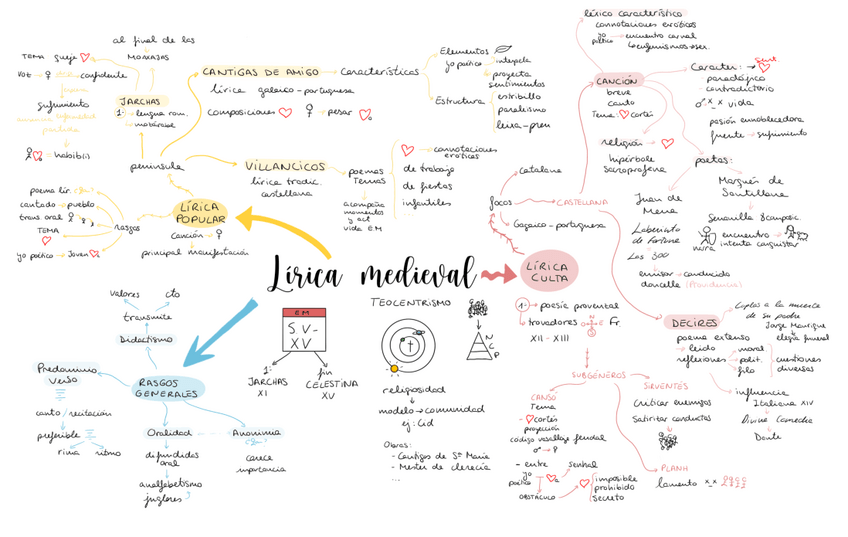 Lírica medieval
LÍRICA
POPULAR
Canción → ♀
principal manifestación
rasgos
poema lír.
cantado → pueblo
trans. oral
TEMA
yo poético → Joven
península
JARCHAS
1ª lengua rom.
mozárabe
al final de las
MOAXAJAS
TEMA queja
voz ♀
confidente
sufrimiento
habib(i)
CANTIGAS DE AMIGO → características
lírica galaico-portuguesa
composiciones
pesar
Elementos
yo poético
interpela
proyecta
sentimientos
Estructura
estribillo
paralelismo
leixa-pren
VILLANCICOS
lírica tradic.
castellana
poemas
Temas
acompaña
momentos
y act
vida E.M
connotaciones
eróticas
de trabajo
de fiestas
infantiles
LÍRICA
CULTA
focos
catalana
CASTELLANA
Gagaico-portuguesa
CANCIÓN
breve
canto
Tema: cortés
léxico característico
connotaciones eróticas
yo
poético
encuentro carnal
Caracter:
paradójico
contradictorio
vida
pasión ennoblecedora
fuente → sufrimiento
religión →
hipérbole
sacroprofana
poetas:
Marqués de
Santillana
Serranilla
encuentro
intenta conquistar
Juan de
Mena
Laberinto
de fortuna
Las 300
emisor → conducido
doncella (Providencia)
DECIRES
Coplas a la muerte
de su padre
Jorge Manrique
elegía funeral
poema extenso
leído
reflexiones
moral
polít.
filo
cuestiones
diversas
influencia
Italiana XIV
Divina Comedia
Dante
1ª → poesía provenzal
trovadores
Fr.
XII - XIII
SUBGÉNEROS
CANSÓ
Tema
cortés
proyección
código vasallaje feudal
- entre
yo
poético
senhal
OBSTÁCULO
imposible
prohibido
secreto
SIRVENTÉS
Criticar enemigos
Satirizar conductas
PLANH
lamento
RASGOS
GENERALES
Didactismo
transmite
valores
cto
Predominio
verso
canto / recitación
preferible
rima
ritmo
Oralidad
difundidas
oral
analfabetismo
juglares
Anonimia
carece
importancia
EM
S.V-
XV
1ª
JARCHAS
XI
fin
CELESTINA
XV
TEOCENTRISMO
N
C
P
religiosidad
modelo → comunidad
ej: Cid
Obras:
- Cantigas de Sª María
- Mester de clerecía
...